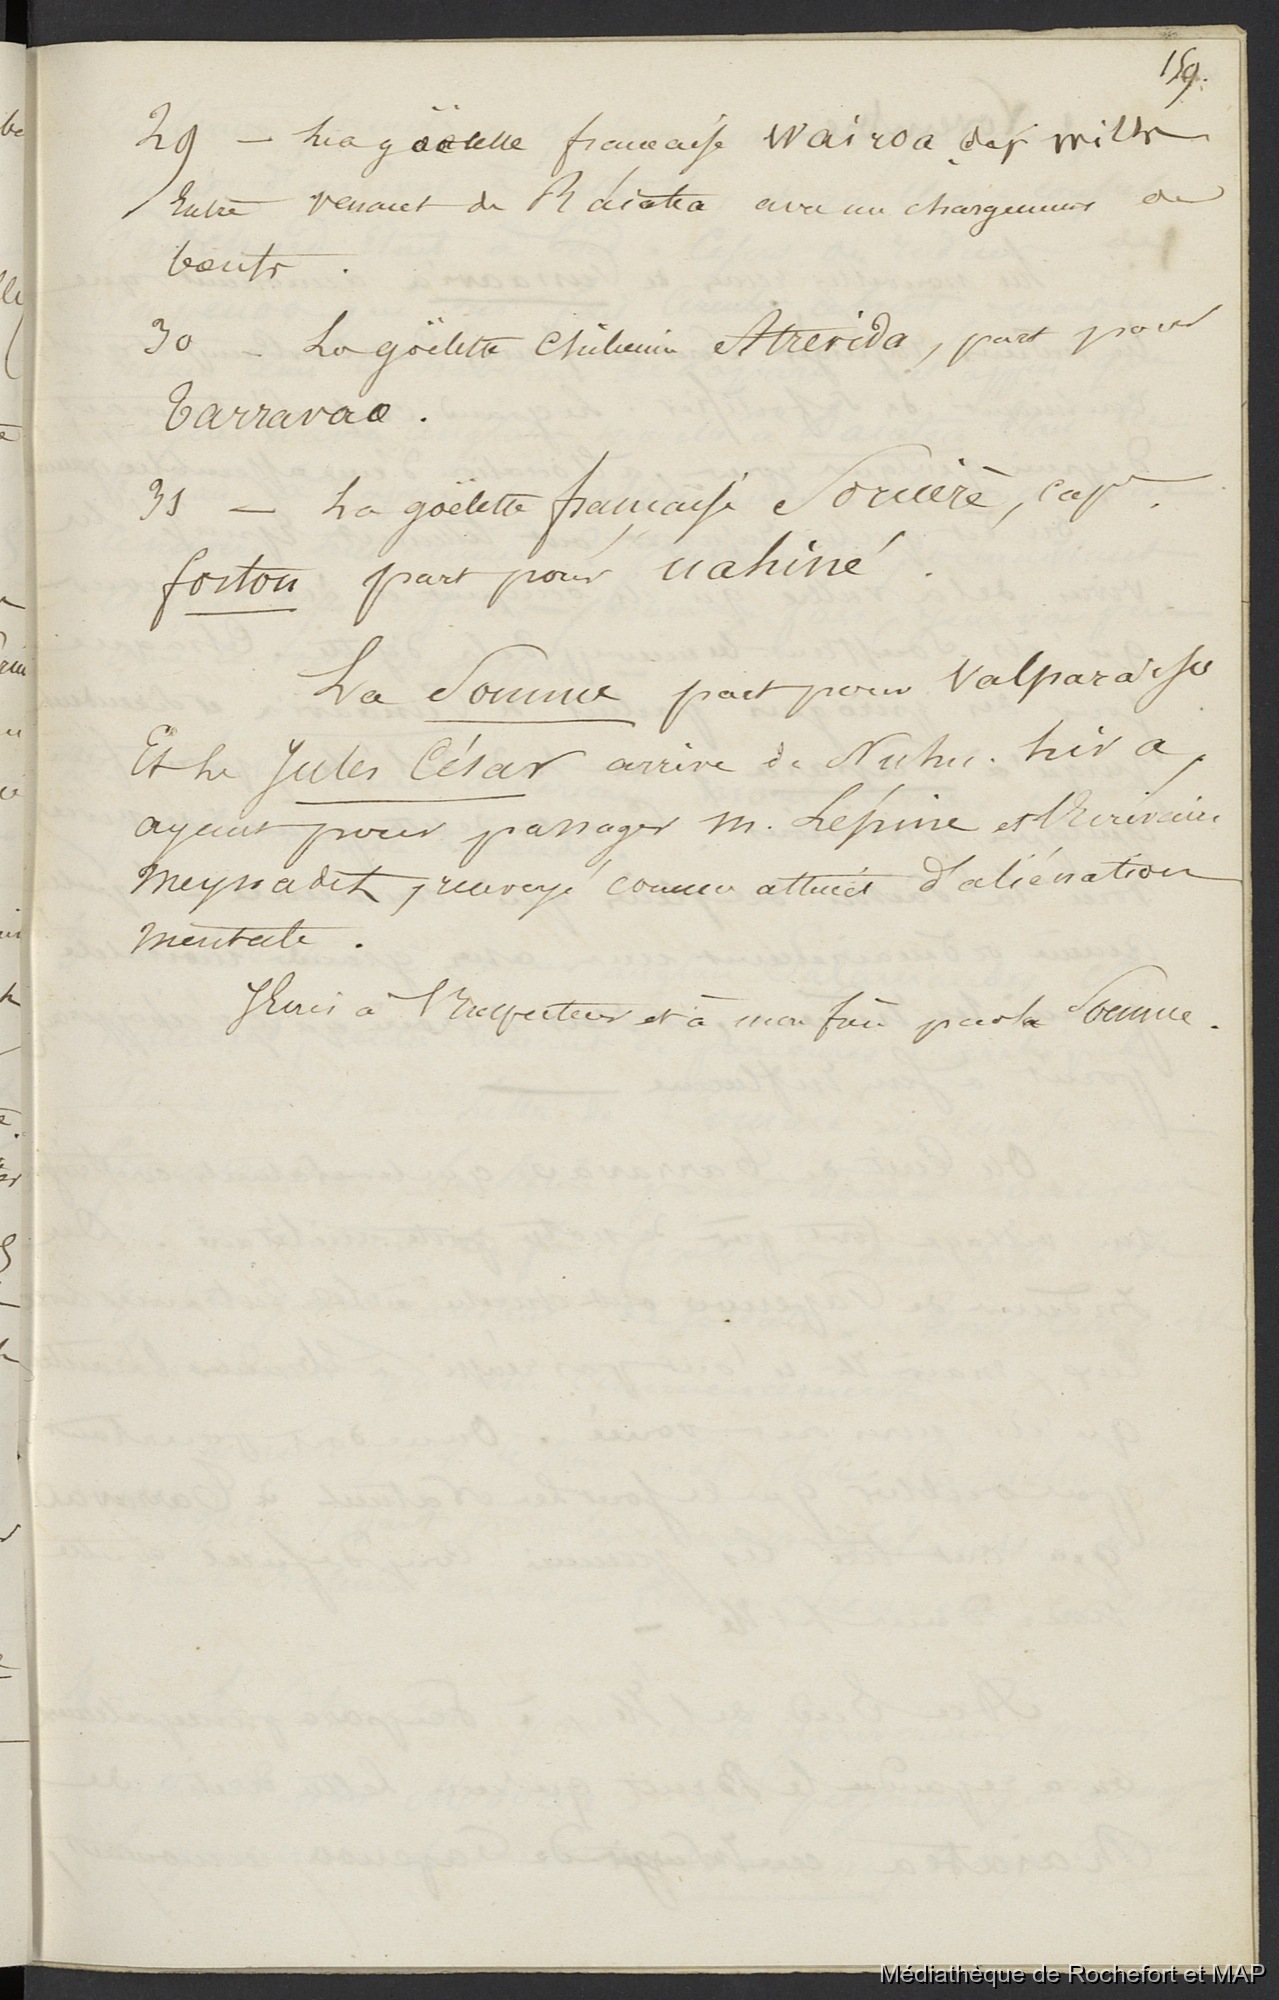 159.
29 – La goëlette française Wairoa, cap Mills
Entre venant de Raïatea avec un chargement de
bœufs.
30 – La goëlette Chilienne Atrevida, part pour
Tarravao.
31 – La goëlette française Sorcière, cap^ne.
foston part pour uahiné.
La Somme part pour Valparaiso
Et le Jules César arrive de Nuhu. hiva,
ayant pour passager M. Lépine et l'Ecrivain
Meyssadet, renvoyé comme atteint d'aliénation
mentale.
J'Ecris à l'Inspecteur et à mon frère par la Somme.
Médiathèque de Rochefort et MAP